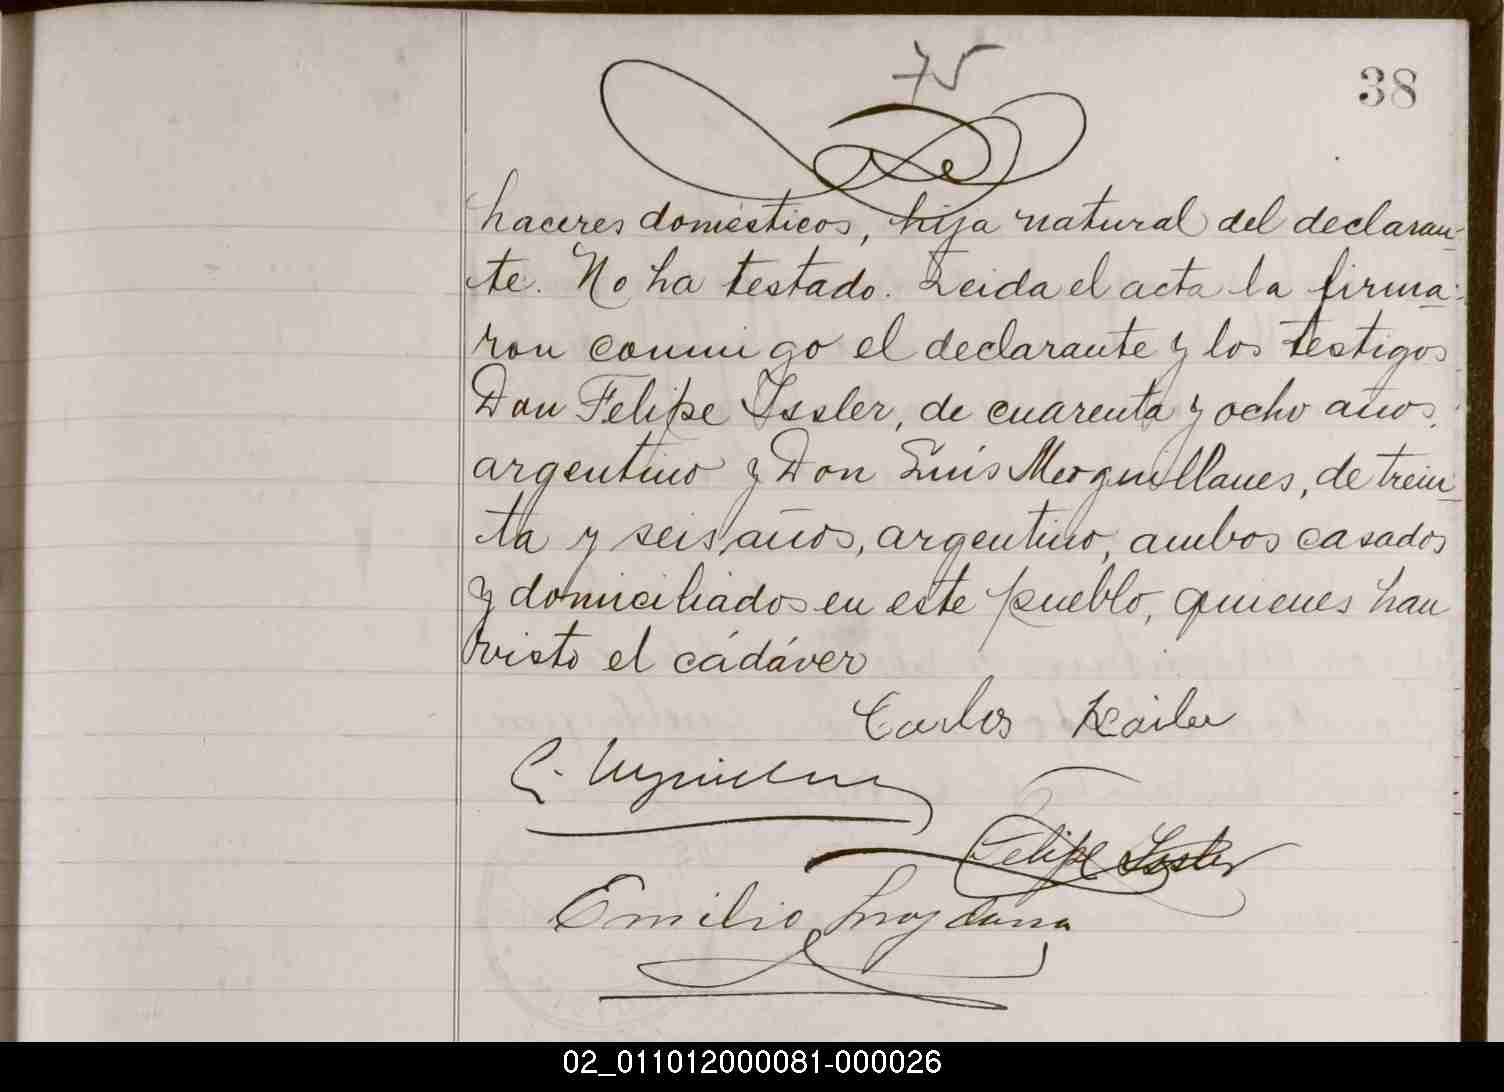 75
38
haceres domésticos, hija natural del declaran-
te. No ha testado. Leida el acta la firma-
ron conmigo el declarante y los testigos
Don Felipe Issler, de cuarenta y ocho años,
argentino y Don Luis Moguillanes, de trein-
ta y seis años, argentino, ambos casados
y domiciliados en este pueblo, quienes han
visto el cádáver
Carlos Kailer
Felipe Issler
Emilio
02_011012000081-000026